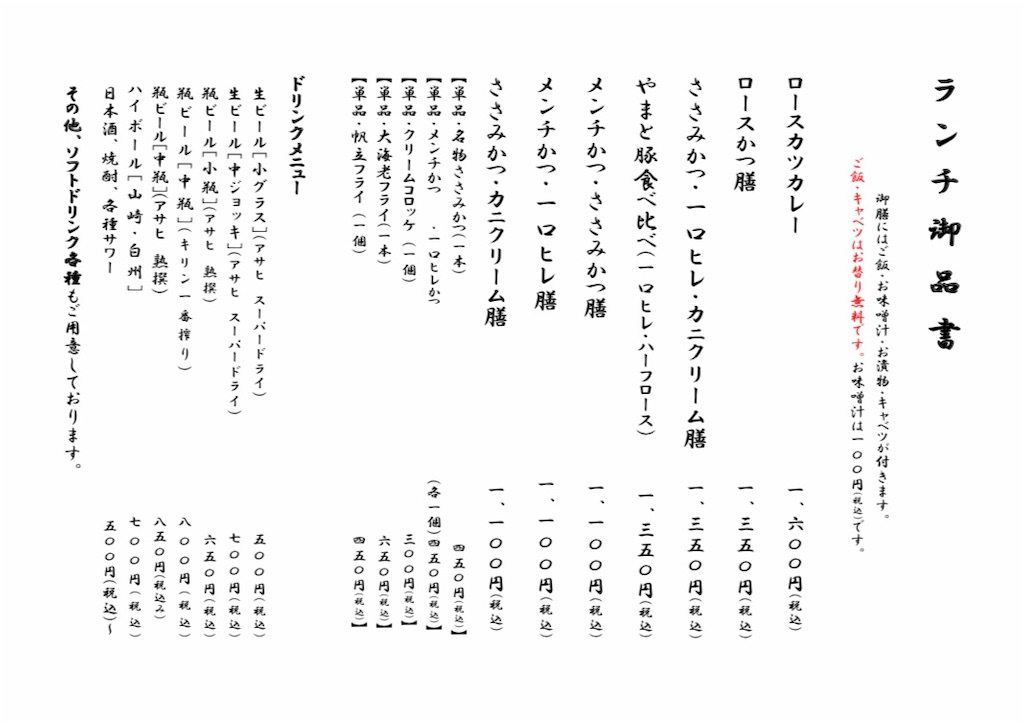 ランチ御品書
御膳にはご飯・お味噌汁・お漬物・キャベツが付きます。
ご飯・キャベツはお替り無料です。お味噌汁は一〇〇円(税込)です。
ロースカツカレー 一、六〇〇円(税込)
ロースかつ膳 一、三五〇円(税込)
ささみかつ・一口ヒレ・カニクリーム膳 一、三五〇円(税込)
やまと豚食べ比べ(一口ヒレ・ハーフロース) 一、三五〇円(税込)
メンチかつ・ささみかつ膳 一、一〇〇円(税込)
メンチかつ・一口ヒレ膳 一、一〇〇円(税込)
ささみかつ・カニクリーム膳 一、一〇〇円(税込)
【単品・名物ささみかつ(一本) 四五〇円(税込)】
【単品・メンチかつ ・一口ヒレかつ (各一個)四五〇円(税込)】
【単品・クリームコロッケ(一個) 三〇〇円(税込)】
【単品・大海老フライ(一本) 六五〇円(税込)】
【単品・帆立フライ(一個) 四五〇円(税込)】
ドリンクメニュー
生ビール[小グラス](アサヒ スーパードライ) 五〇〇円(税込)
生ビール[中ジョッキ](アサヒ スーパードライ) 七〇〇円(税込)
瓶ビール[小瓶](アサヒ 熟撰) 六五〇円(税込)
瓶ビール[中瓶](キリン一番搾り) 八〇〇円(税込)
瓶ビール[中瓶](アサヒ 熟撰) 八五〇円(税込み)
ハイボール[山崎・白州] 七〇〇円(税込)
日本酒、焼酎、各種サワー 五〇〇円(税込)~
その他、ソフトドリンク各種もご用意しております。